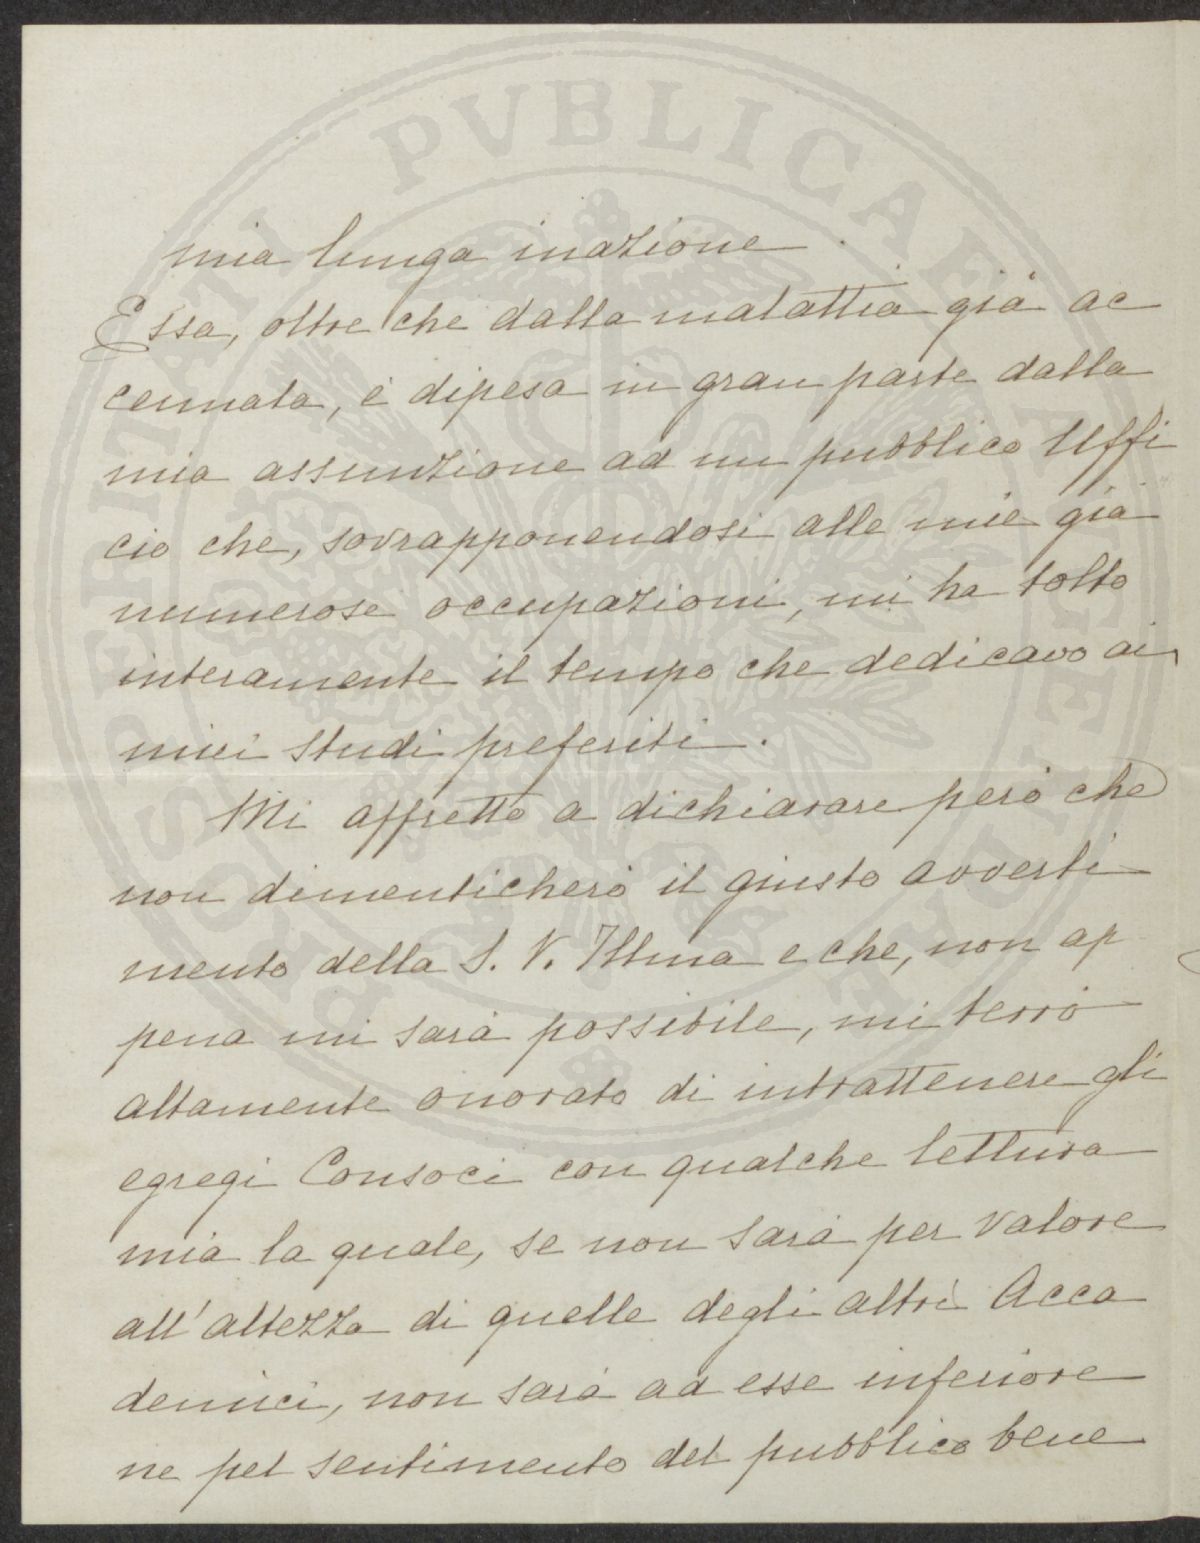 PROSPERITATI PVBLICAE AVGENDAE
mia lunga inazione.
Essa, oltre che dalla malattia già ac
cennata, è dipesa in gran parte dalla
mia assunzione ad un pubblico Uffi
cio che, sovrapponendosi alle mie già
numerose occupazioni, mi ha tolto
interamente il tempo che dedicavo ai
miei studi preferiti.
Mi affretto a dichiarare però che
non dimenticherò il giusto avverti
mento della S. V. Illma e che, non ap
pena mi sarà possibile, mi terrò
altamente onorato di intrattenere gli
egregi Consoci con qualche lettura
mia la quale, se non sarà per valore
all'altezza di quelle degli altri Acca
demici, non sarà ad esse inferiore
ne pel sentimento del pubblico bene